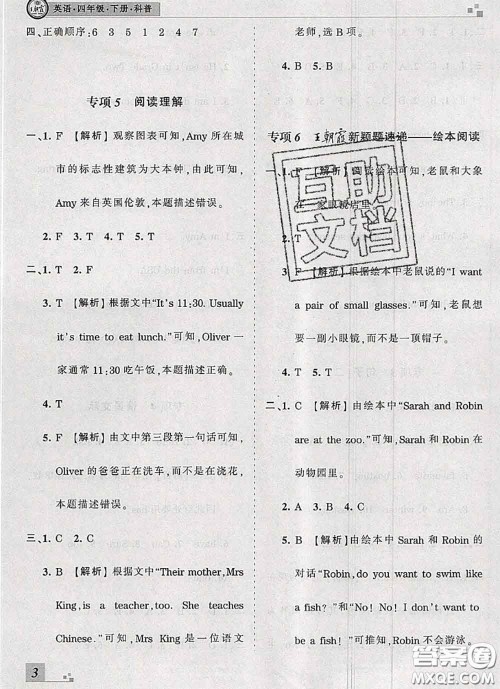 英语·四年级·下册·科普
四、正确顺序:6 3 5 1 2 4 7
专项5 阅读理解
一、1. F 【解析】观察图表可知,Amy 所在城
市的标志性建筑为大本钟,由此可
知,Amy 来自英国伦敦,本题描述错误。
2. F 3. T 4. T 5. T
二、1. T 2. F
3. T 【解析】根据文中“It's 11:30. Usually
it's time to eat lunch.”可知,Oliver 一
家通常 11:30 吃午饭,本题描述正确。
4. T
5. F 【解析】由文中第三段第一句话可知,
Oliver 的爸爸正在洗车,而不是在浇花,
本题描述错误。
三、1. C 2. C
3. B 【解析】根据文中“Their mother, Mrs
King, is a teacher, too. She teaches
Chinese.”可知,Mrs King 是一位语文
老师,选 B 项。
4. B 5. B
专项6 王朝霞新题速递——绘本阅读
一、1. F 【解析】可知,老鼠和大象
在一家眼镜店里
2. T
3. F 【解析】根据绘本中老鼠说的“I want
a pair of small glasses.”可知,老鼠想
要一副小眼镜,而不是一顶帽子。
4. T 5. T
二、1. C 【解析】由绘本中“Sarah and Robin
are at the zoo.”可知,Sarah 和 Robin 在
动物园里。
2. A 3. A 4. C
5. B 【解析】由绘本中 Sarah 和 Robin 的
对话“Robin, do you want to swim like
a fish?”和“No! No! I don't want to be
a fish!”可推知,Robin 不会游泳。
3
互助
文档
答案圈
MXQE.COM